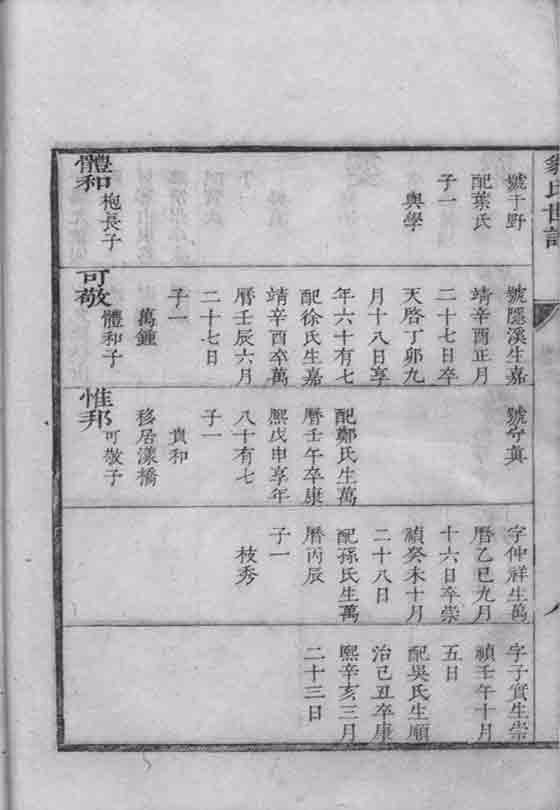 號于野
配葉氏
子一
與學
體和 枹長子
號隱溪生嘉
靖辛酉正月
二十七日卒
天啓丁卯九
月十八日享
年六十有七
配徐氏生嘉
靖辛酉卒萬
曆壬辰六月
二十七日
子一
萬鍾
可敬 體和子
號守真
配鄭氏生萬
曆壬午卒康
熙戊申享年
八十有七
子一
貴和
移居漾橋
惟邦 可敬子
字仲祥生萬
曆乙巳九月
十六日卒崇
禎癸未十月
二十八日
配孫氏生萬
曆丙辰
子一
枝秀
字子實生崇
禎壬午十月
五日
配吳氏生順
治己丑卒康
熙辛亥三月
二十三日